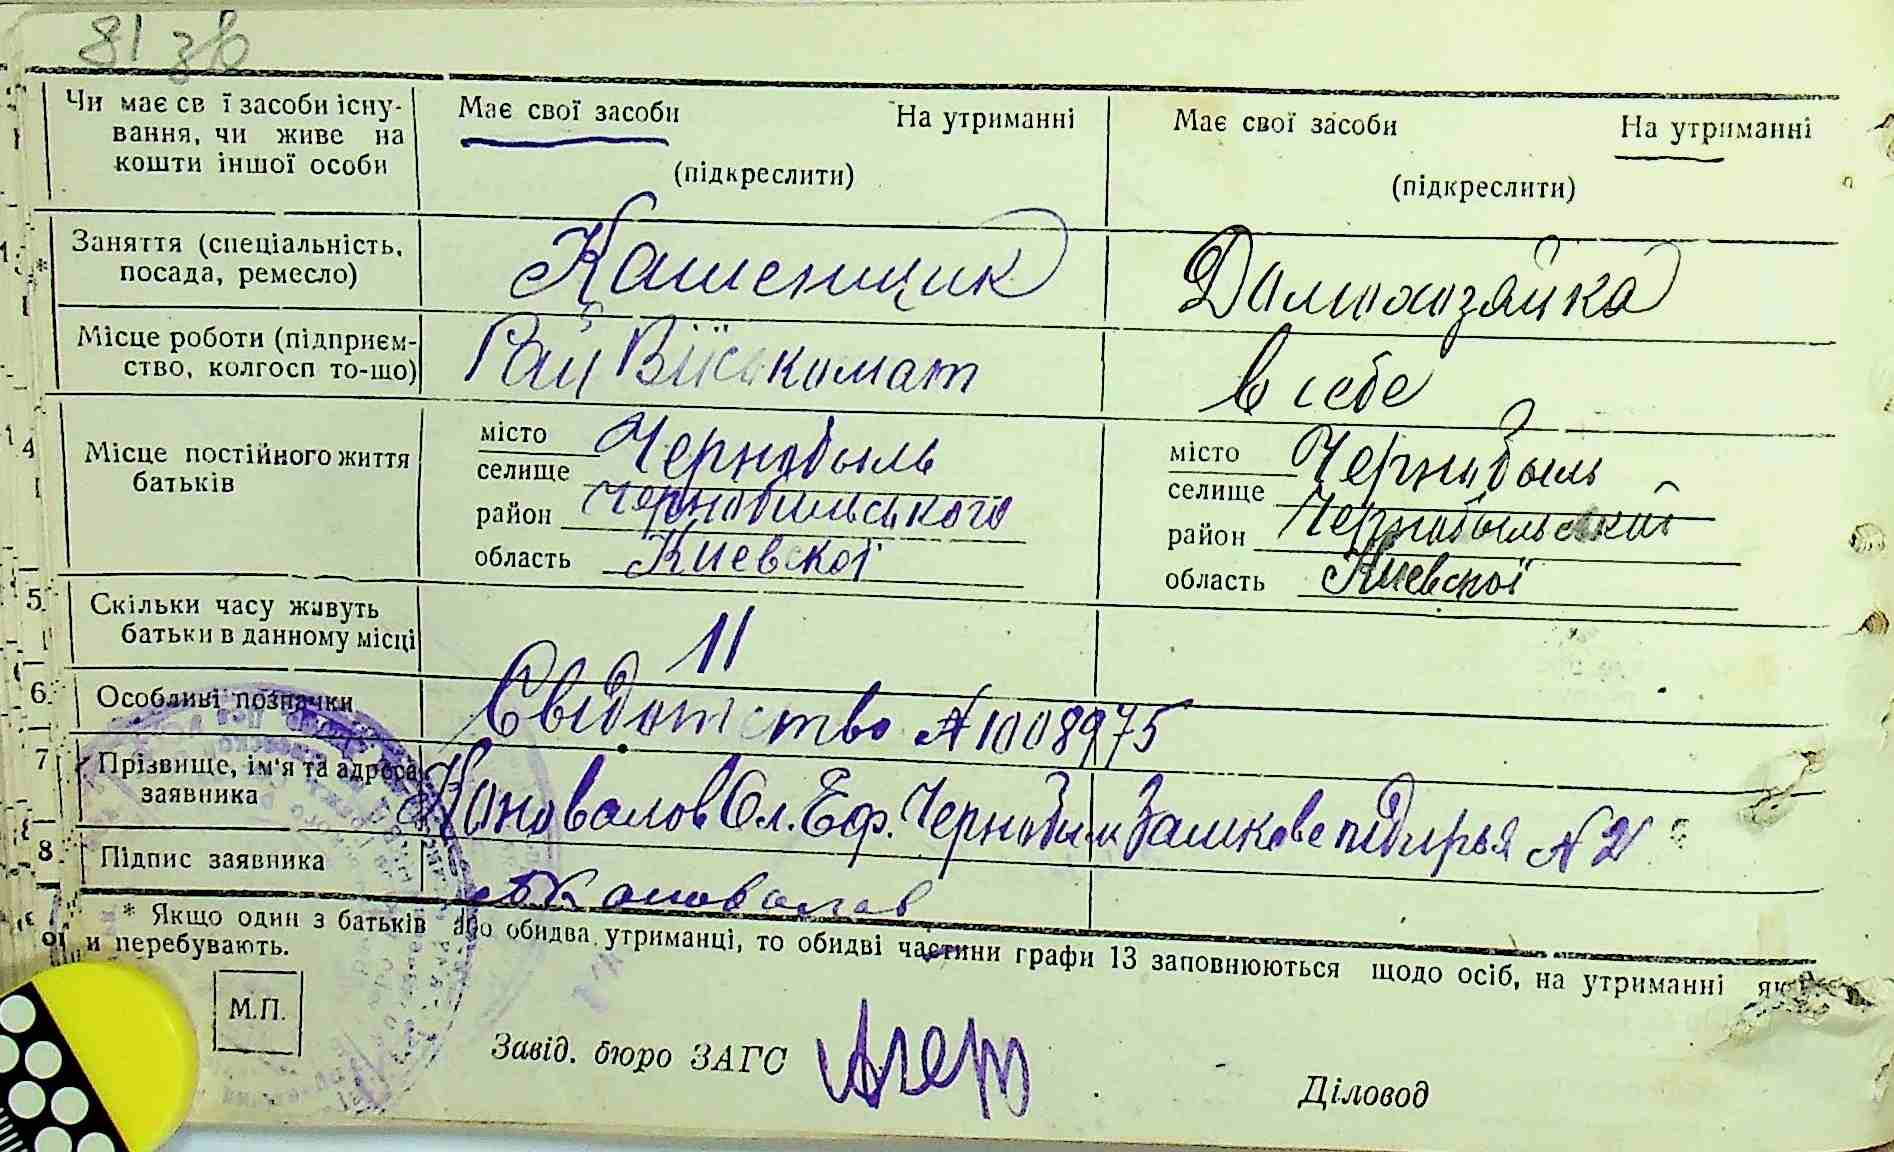 81 зв
Чи має св ї засоби існу-
вання, чи живе на
кошти іншої особи
Має свої засоби На утриманні
(підкреслити)
Має свої засоби На утриманні
(підкреслити)
Заняття (спеціальність,
посада, ремесло)
Домохозяйка
Місце роботи (підприєм-
ство, колгосп то-що)
Рай Військомат
в себе
4
Місце постійного життя
батьків
місто Чернобыль
селище
район Чернобильського
область Киевскої
місто Чернобыль
селище
район Чернобыльский
область Киевскої
5
Скільки часу живуть
батьки в данному місці
11
6
Особливі позначки
Свідотство № 1008975
7
Прізвище, ім'я та адреса
заявника
Коновалов Ол. Еф. Чернобыл Замкове підгірья № 21
8
Підпис заявника
Коновалов
* Якщо один з батьків або обидва утриманці, то обидві частини графи 13 заповнюються щодо осіб, на утриманні як
и перебувають.
М.П.
Завід. бюро ЗАГС
Діловод